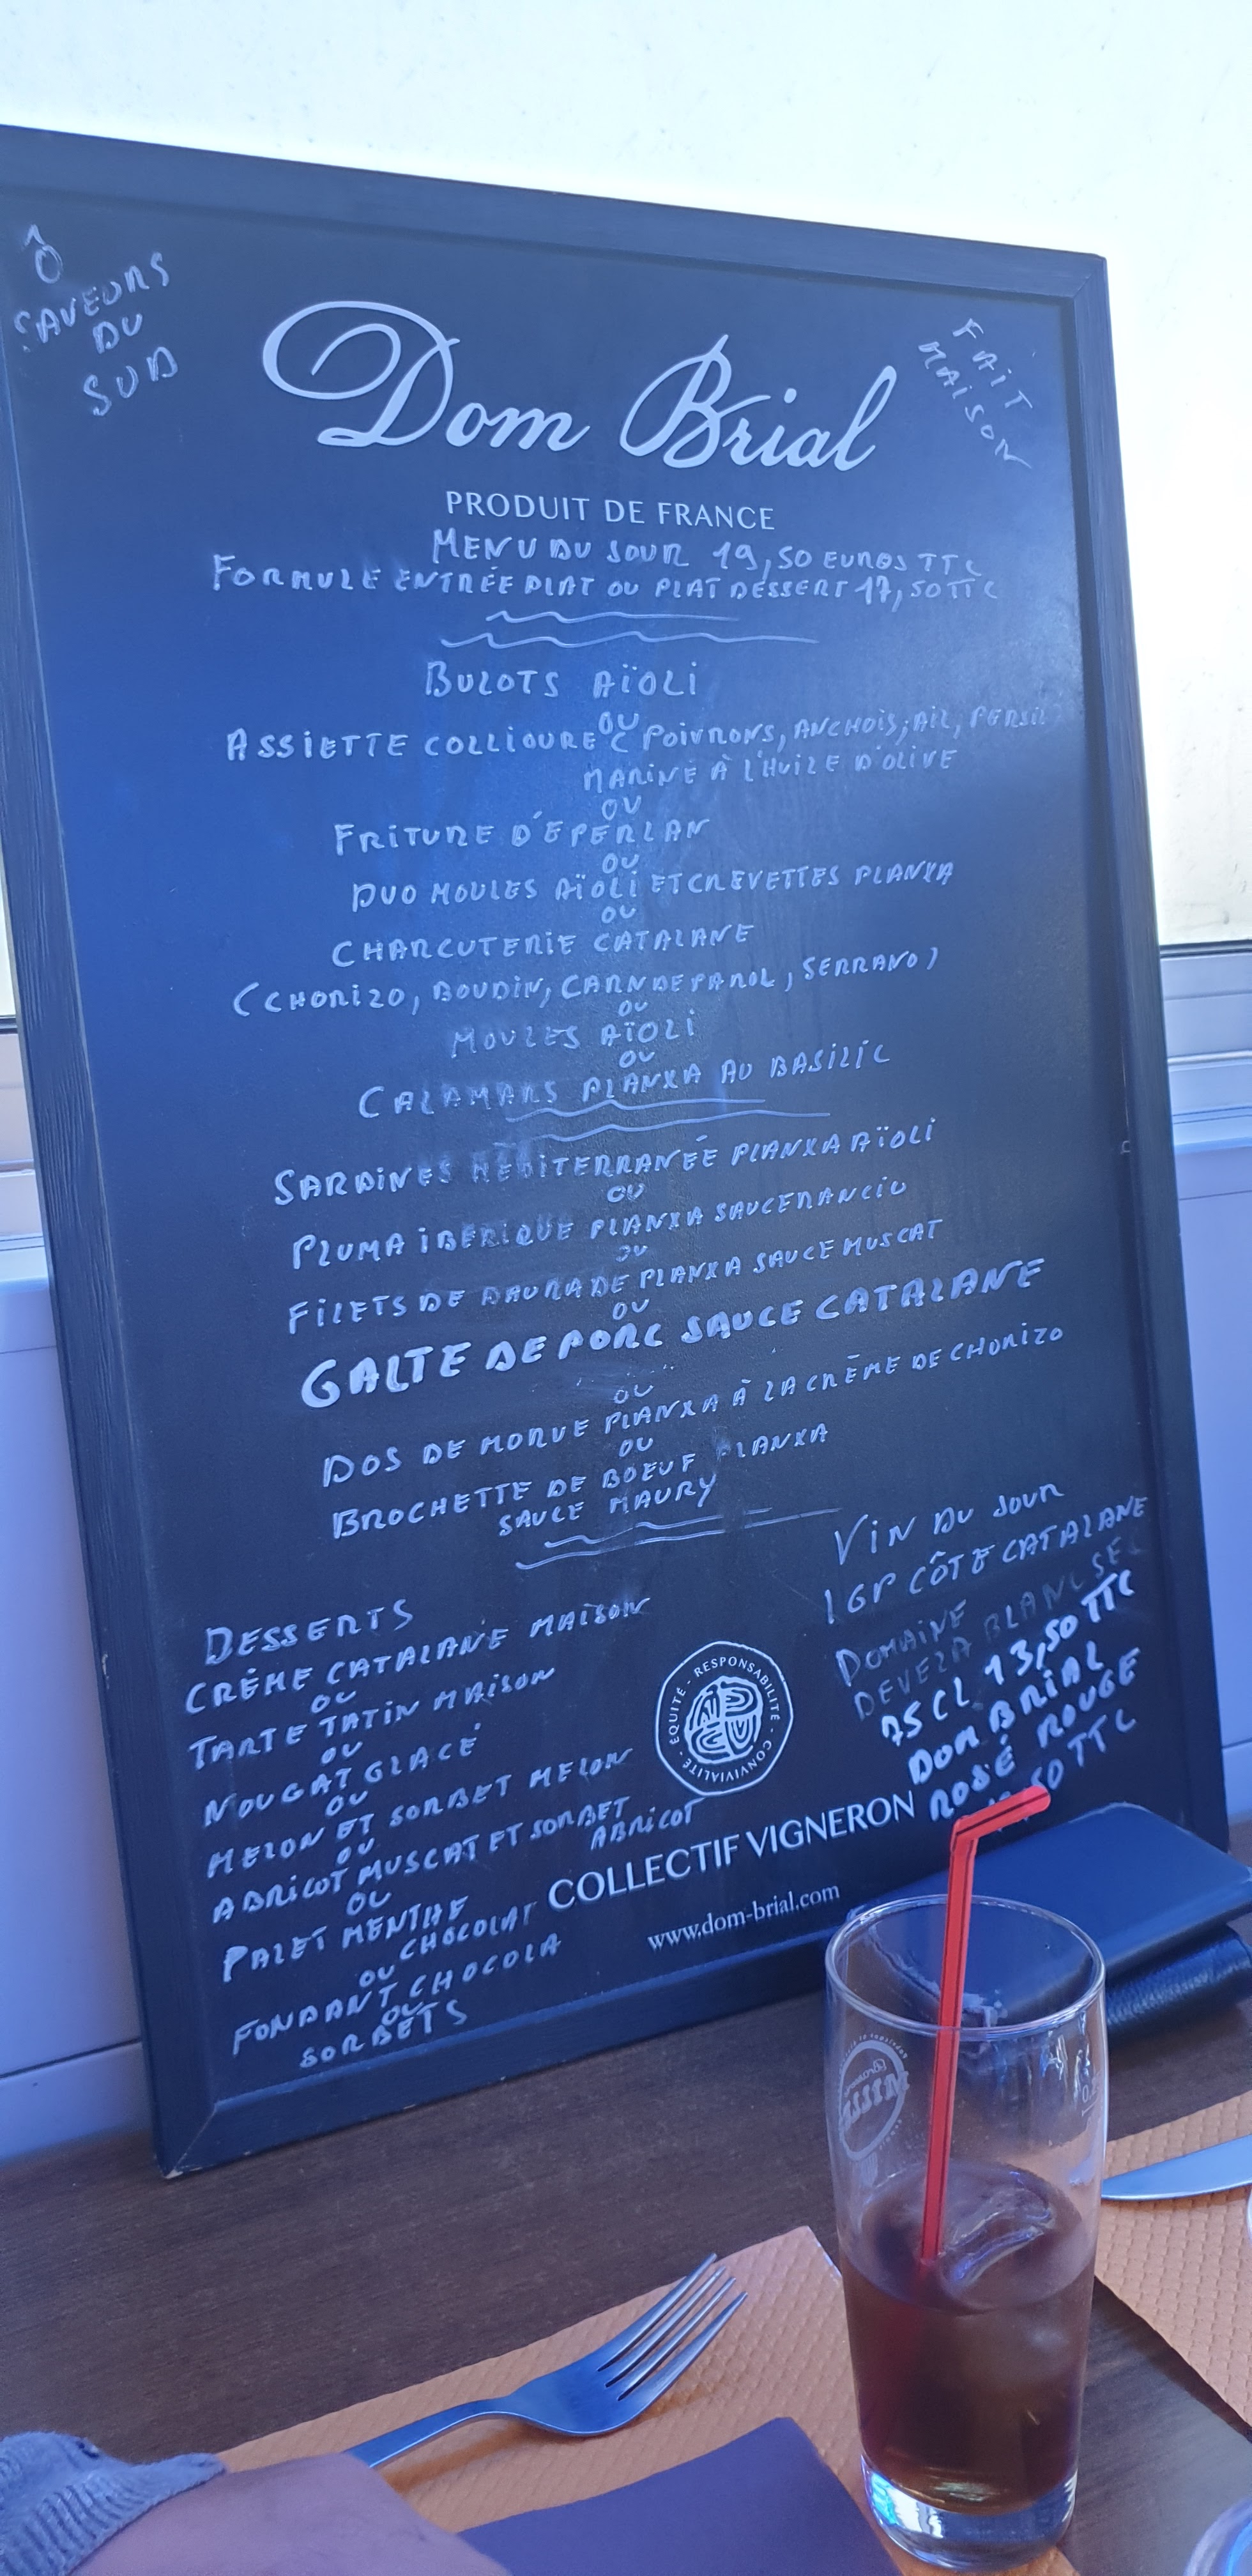 Ô
SAVEURS
DU
SUD
FAIT
MAISON
Dom Brial
PRODUIT DE FRANCE
MENU DU JOUR 19,50 EUROS TTC
FORMULE ENTRÉE PLAT OU PLAT DESSERT 17,50 TTC
BULOTS AÏOLI
OU
ASSIETTE COLLIOURE ( POIVRONS, ANCHOIS, AIL, PERSIL
MARINÉ À L'HUILE D'OLIVE
OU
FRITURE D'ÉPERLAN
OU
DUO MOULES AÏOLI ET CREVETTES PLANXA
OU
CHARCUTERIE CATALANE
(CHORIZO, BOUDIN, CARN DE PAROL, SERRANO)
OU
MOULES AÏOLI
OU
CALAMARS PLANXA AU BASILIC
SARDINES MEDITERRANÉE PLANXA AÏOLI
OU
PLUMA IBERIQUE PLANXA SAUCE RANCIO
OU
FILETS DE DAURADE PLANXA SAUCE MUSCAT
OU
GALTE DE PORC SAUCE CATALANE
OU
DOS DE MORUE PLANXA À LA CRÈME DE CHORIZO
OU
BROCHETTE DE BOEUF PLANXA
SAUCE MAURY
DESSERTS
CRÈME CATALANE MAISON
OU
TARTE TATIN MAISON
OU
NOUGAT GLACÉ
OU
MELON ET SORBET MELON
OU
ABRICOT MUSCAT ET SORBET
ABRICOT
OU
PALET MENTHE
CHOCOLAT
OU
FONDANT CHOCOLA
OU
SORBETS
VIN DU JOUR
IGP CÔTE CATALANE
DOMAINE
DEVEZA BLANC SEC
75CL 13,50 TTC
DOM BRIAL
ROSÉ ROUGE
50 TTC
RESPONSABILITÉ - CONVIVIALITÉ - ÉQUITÉ
COLLECTIF VIGNERON
www.dom-brial.com